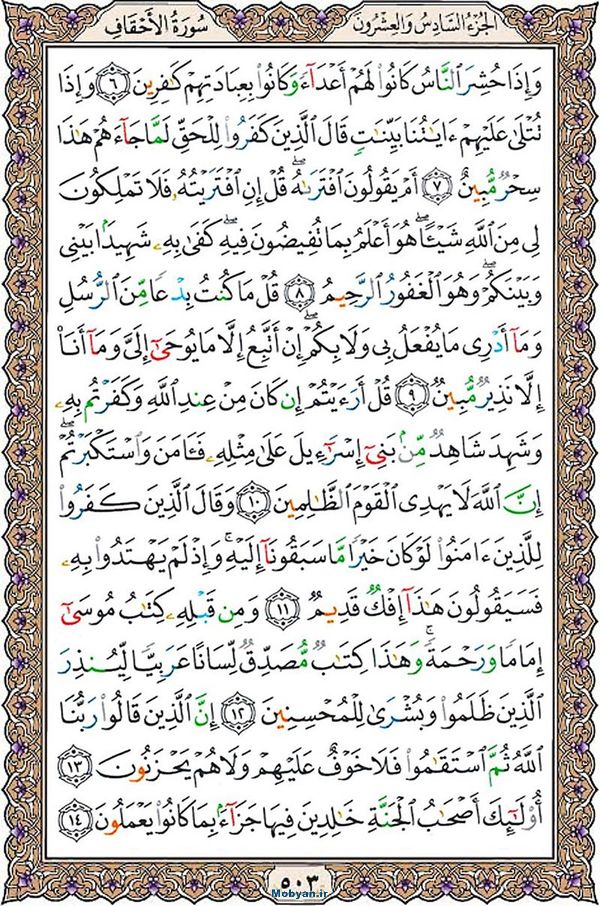 الجزء السادس والعشرون سورة الأحقاف
وَإِذَا حُشِرَ ٱلنَّاسُ كَانُوا۟ لَهُمْ أَعْدَآءً وَكَانُوا۟ بِعِبَادَتِهِمْ كَـٰفِرِينَ ٦ وَإِذَا
تُتْلَىٰ عَلَيْهِمْ ءَايَـٰتُنَا بَيِّنَـٰتٍ قَالَ ٱلَّذِينَ كَفَرُوا۟ لِلْحَقِّ لَمَّا جَآءَهُمْ هَـٰذَا
سِحْرٌ مُّبِينٌ ٧ أَمْ يَقُولُونَ ٱفْتَرَىٰهُ ۖ قُلْ إِنِ ٱفْتَرَيْتُهُۥ فَلَا تَمْلِكُونَ
لِى مِنَ ٱللَّهِ شَيْـًٔا ۖ هُوَ أَعْلَمُ بِمَا تُفِيضُونَ فِيهِ ۖ كَفَىٰ بِهِۦ شَهِيدًۢا بَيْنِى
وَبَيْنَكُمْ ۖ وَهُوَ ٱلْغَفُورُ ٱلرَّحِيمُ ٨ قُلْ مَا كُنتُ بِدْعًا مِّنَ ٱلرُّسُلِ
وَمَآ أَدْرِى مَا يُفْعَلُ بِى وَلَا بِكُمْ ۖ إِنْ أَتَّبِعُ إِلَّا مَا يُوحَىٰٓ إِلَىَّ وَمَآ أَنَا۠
إِلَّا نَذِيرٌ مُّبِينٌ ٩ قُلْ أَرَءَيْتُمْ إِن كَانَ مِنْ عِندِ ٱللَّهِ وَكَفَرْتُم بِهِۦ
وَشَهِدَ شَاهِدٌ مِّنۢ بَنِىٓ إِسْرَٰٓءِيلَ عَلَىٰ مِثْلِهِۦ فَـَٔامَنَ وَٱسْتَكْبَرْتُمْ ۖ
إِنَّ ٱللَّهَ لَا يَهْدِى ٱلْقَوْمَ ٱلظَّـٰلِمِينَ ١٠ وَقَالَ ٱلَّذِينَ كَفَرُوا۟
لِلَّذِينَ ءَامَنُوا۟ لَوْ كَانَ خَيْرًا مَّا سَبَقُونَآ إِلَيْهِ ۚ وَإِذْ لَمْ يَهْتَدُوا۟ بِهِۦ
فَسَيَقُولُونَ هَـٰذَآ إِفْكٌ قَدِيمٌ ١١ وَمِن قَبْلِهِۦ كِتَـٰبُ مُوسَىٰٓ
إِمَامًا وَرَحْمَةً ۚ وَهَـٰذَا كِتَـٰبٌ مُّصَدِّقٌ لِّسَانًا عَرَبِيًّا لِّيُنذِرَ
ٱلَّذِينَ ظَلَمُوا۟ وَبُشْرَىٰ لِلْمُحْسِنِينَ ١٢ إِنَّ ٱلَّذِينَ قَالُوا۟ رَبُّنَا
ٱللَّهُ ثُمَّ ٱسْتَقَـٰمُوا۟ فَلَا خَوْفٌ عَلَيْهِمْ وَلَا هُمْ يَحْزَنُونَ ١٣
أُو۟لَـٰٓئِكَ أَصْحَـٰبُ ٱلْجَنَّةِ خَـٰلِدِينَ فِيهَا جَزَآءًۢ بِمَا كَانُوا۟ يَعْمَلُونَ ١٤
٥٠٣
Mobyan.ir